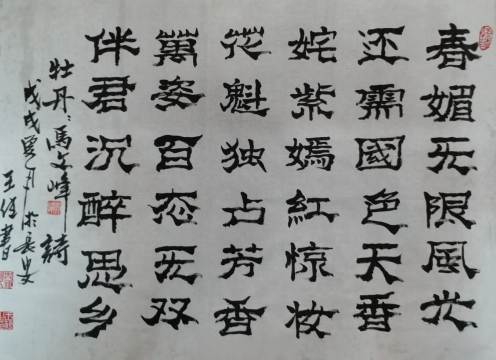 春媚无限风光
还需國色天香
姹紫嫣紅惊妆
花魁独占芳香
萬姿百态无双
伴君沉醉思乡
牡丹：馬文峰詩
戊戌夏月於長安
王佳書